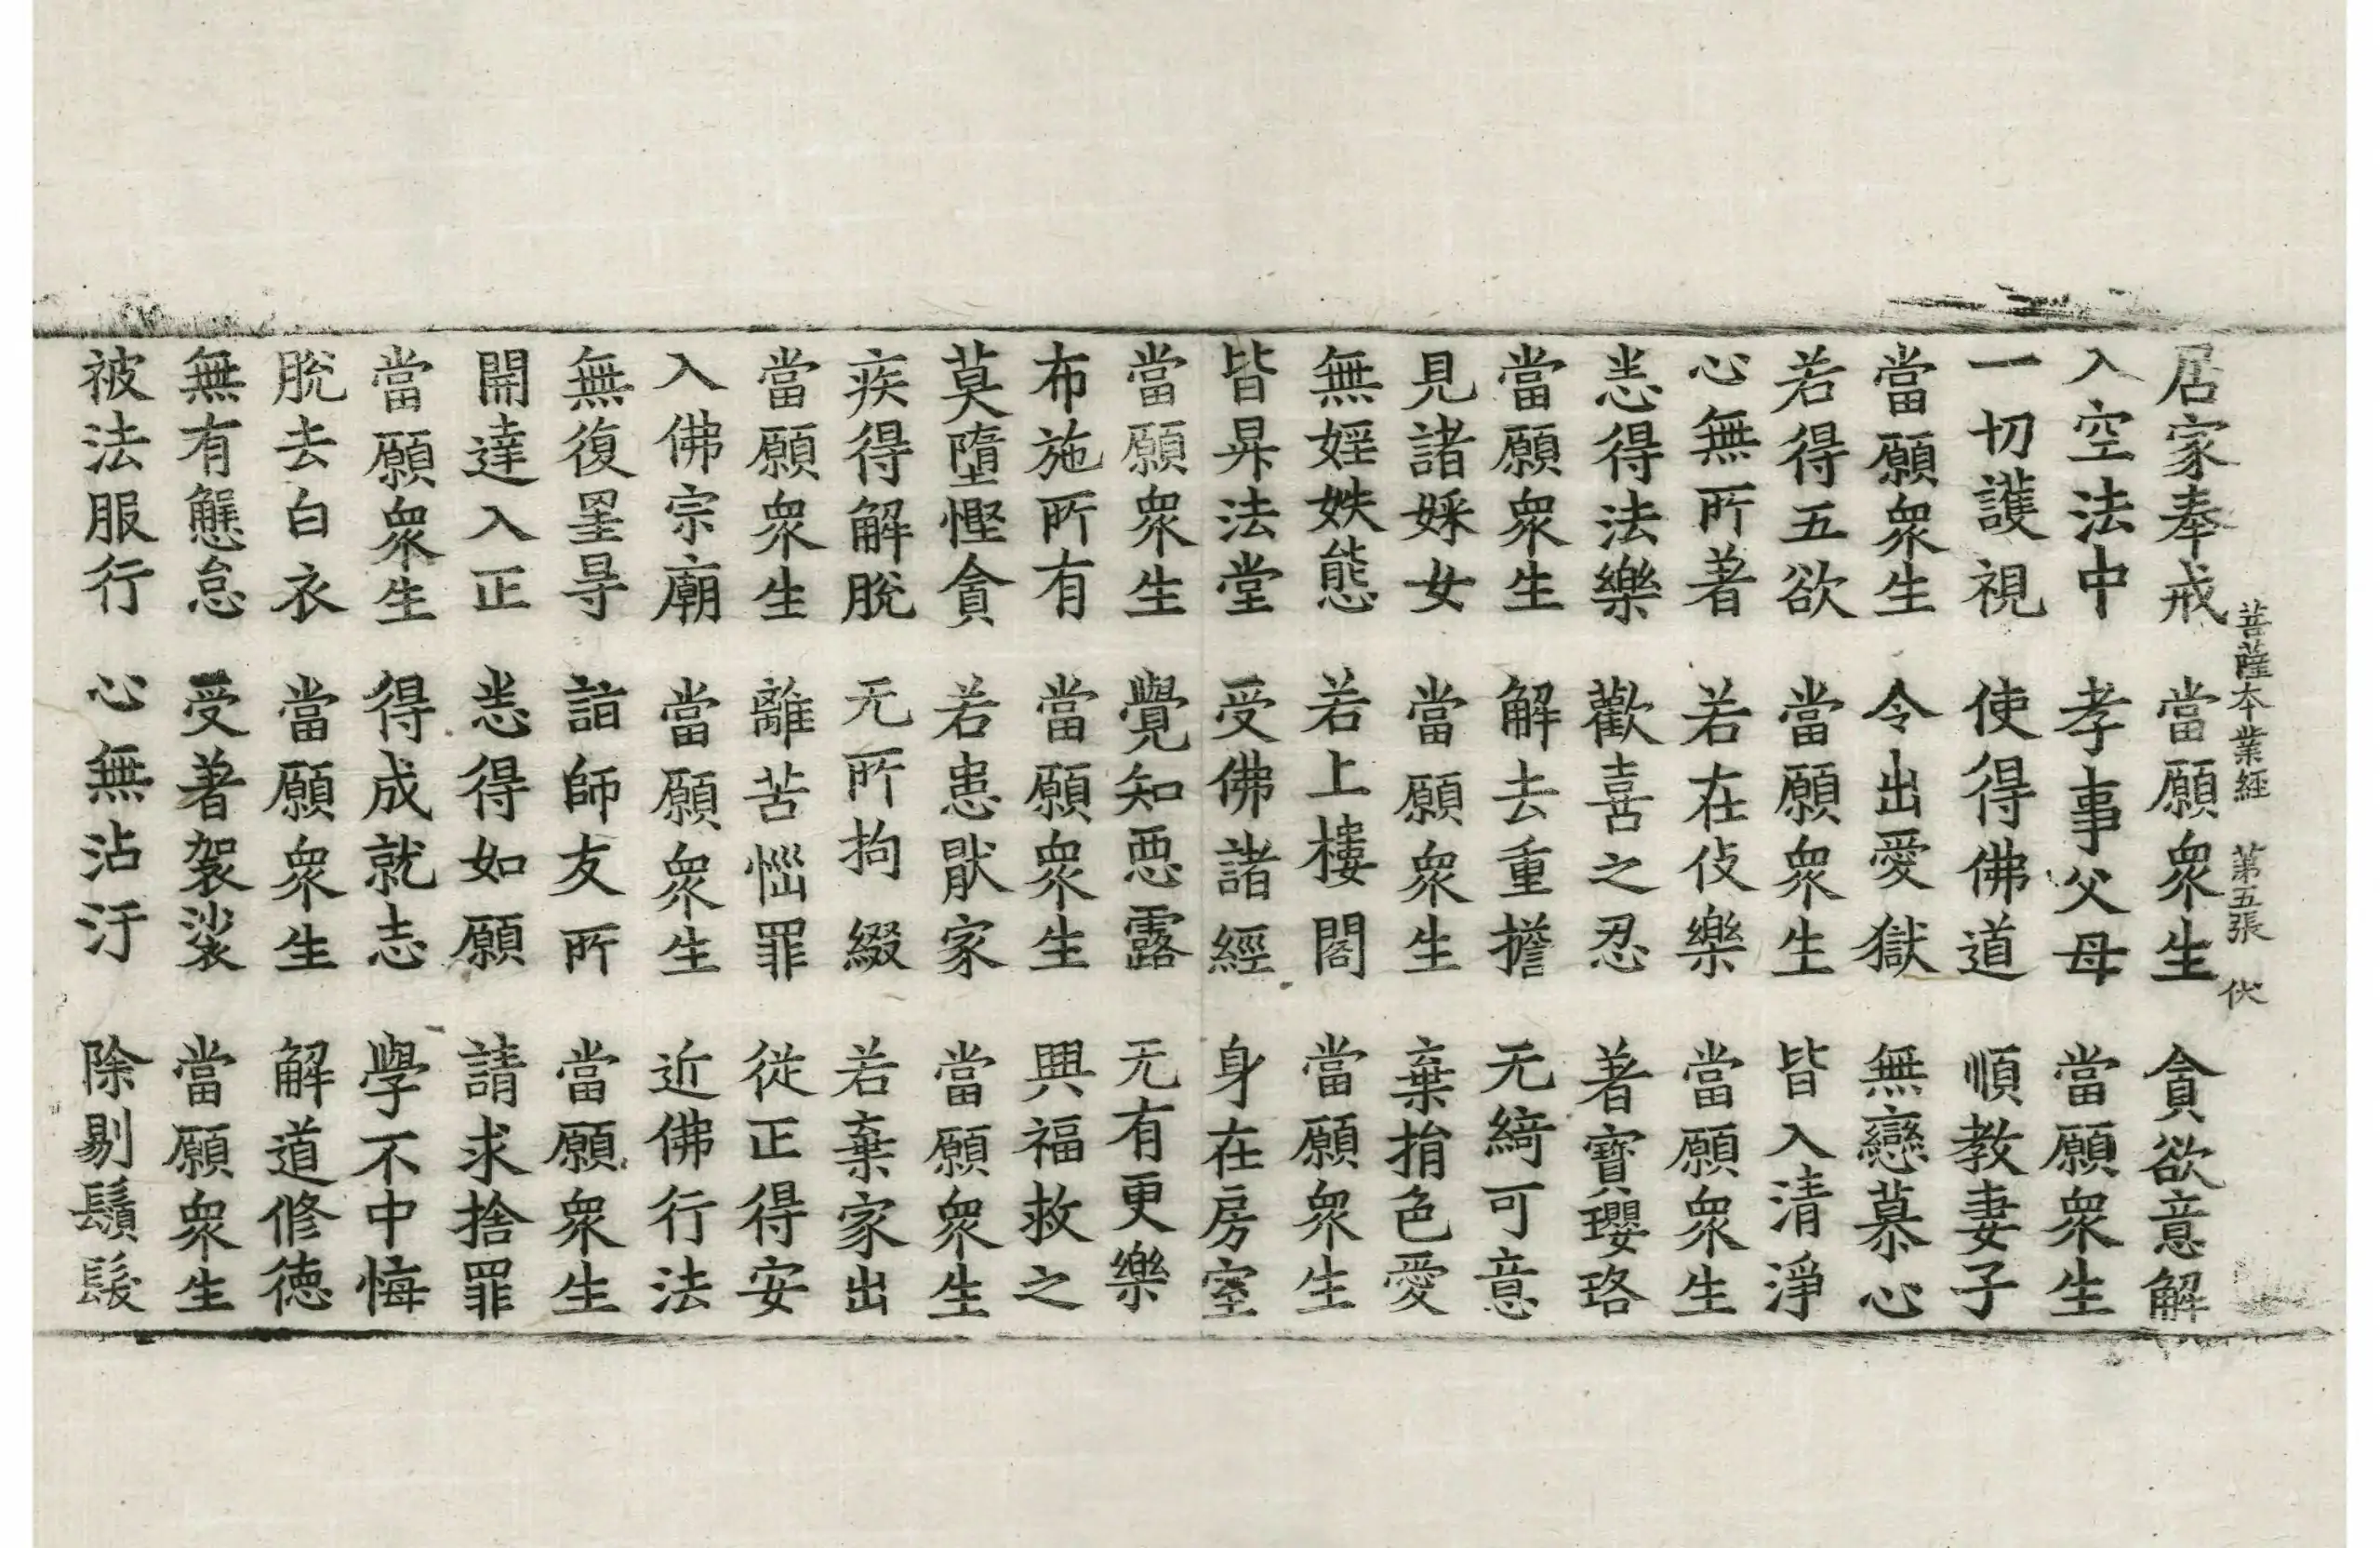 菩薩本業經 第五張 伏
居家奉戒 當願衆生 貪欲意解
入空法中 孝事父母 當願衆生
一切護視 使得佛道 順教妻子
當願衆生 令出愛獄 無戀慕心
若得五欲 當願衆生 皆入清淨
心無所著 若在伎樂 當願衆生
悉得法樂 歡喜之忍 著寶瓔珞
當願衆生 解去重擔 无綺可意
見諸婇女 當願衆生 棄捐色愛
無婬妷態 若上樓閣 當願衆生
皆昇法堂 受佛諸經 身在房室
當願衆生 覺知惡露 无有更樂
布施所有 當願衆生 興福救之
莫墮慳貪 若患猒家 當願衆生
疾得解脫 无所拘綴 若棄家出
當願衆生 離苦惱罪 從正得安
入佛宗廟 當願衆生 近佛行法
無復罣㝵 詣師友所 當願衆生
開達入正 悉得如願 請求捨罪
當願衆生 得成就志 學不中悔
脫去白衣 當願衆生 解道修德
無有懈怠 受著袈裟 當願衆生
被法服行 心無沾汙 除剔鬚髮